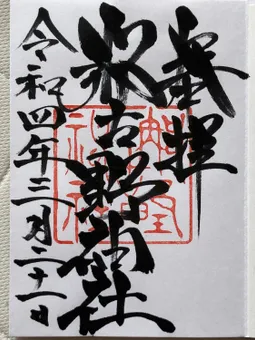 奉拝
水吉野神社
令和四年三月二十一日